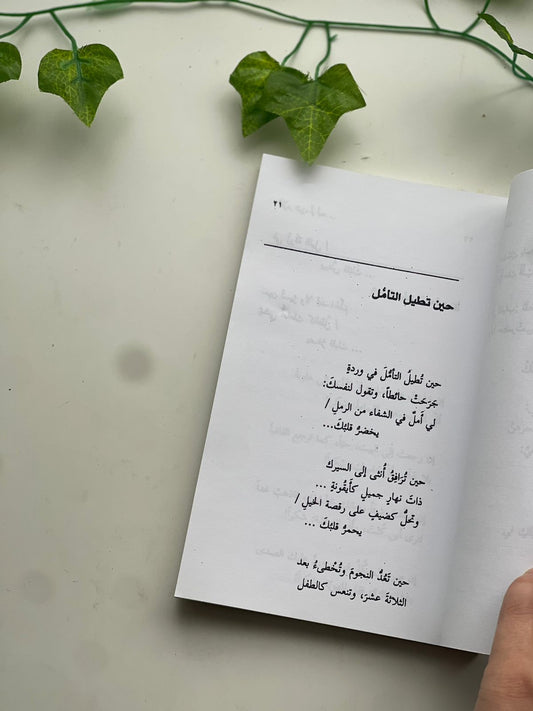 ٢١
حين تطيل التأمُّل
حين تُطيلُ التأمُّلَ في وردةٍ
جَرَحَتْ حائطاً، وتقول لنفسكَ:
لي أَملٌ في الشفاء من الرملِ /
يخضرُّ قلبُكَ...
حين تُرَافِقُ أُنثى إلى السيرك
ذاتَ نهارٍ جميلٍ كأيقُونةٍ ...
وتحلُّ كضيفٍ على رقصة الخيلِ /
يحمرُّ قلبُكَ ...
حين تَعُدُّ النجومَ وتُخْطىءُ بعد
الثلاثةَ عشرَ، وتنعس كالطفل